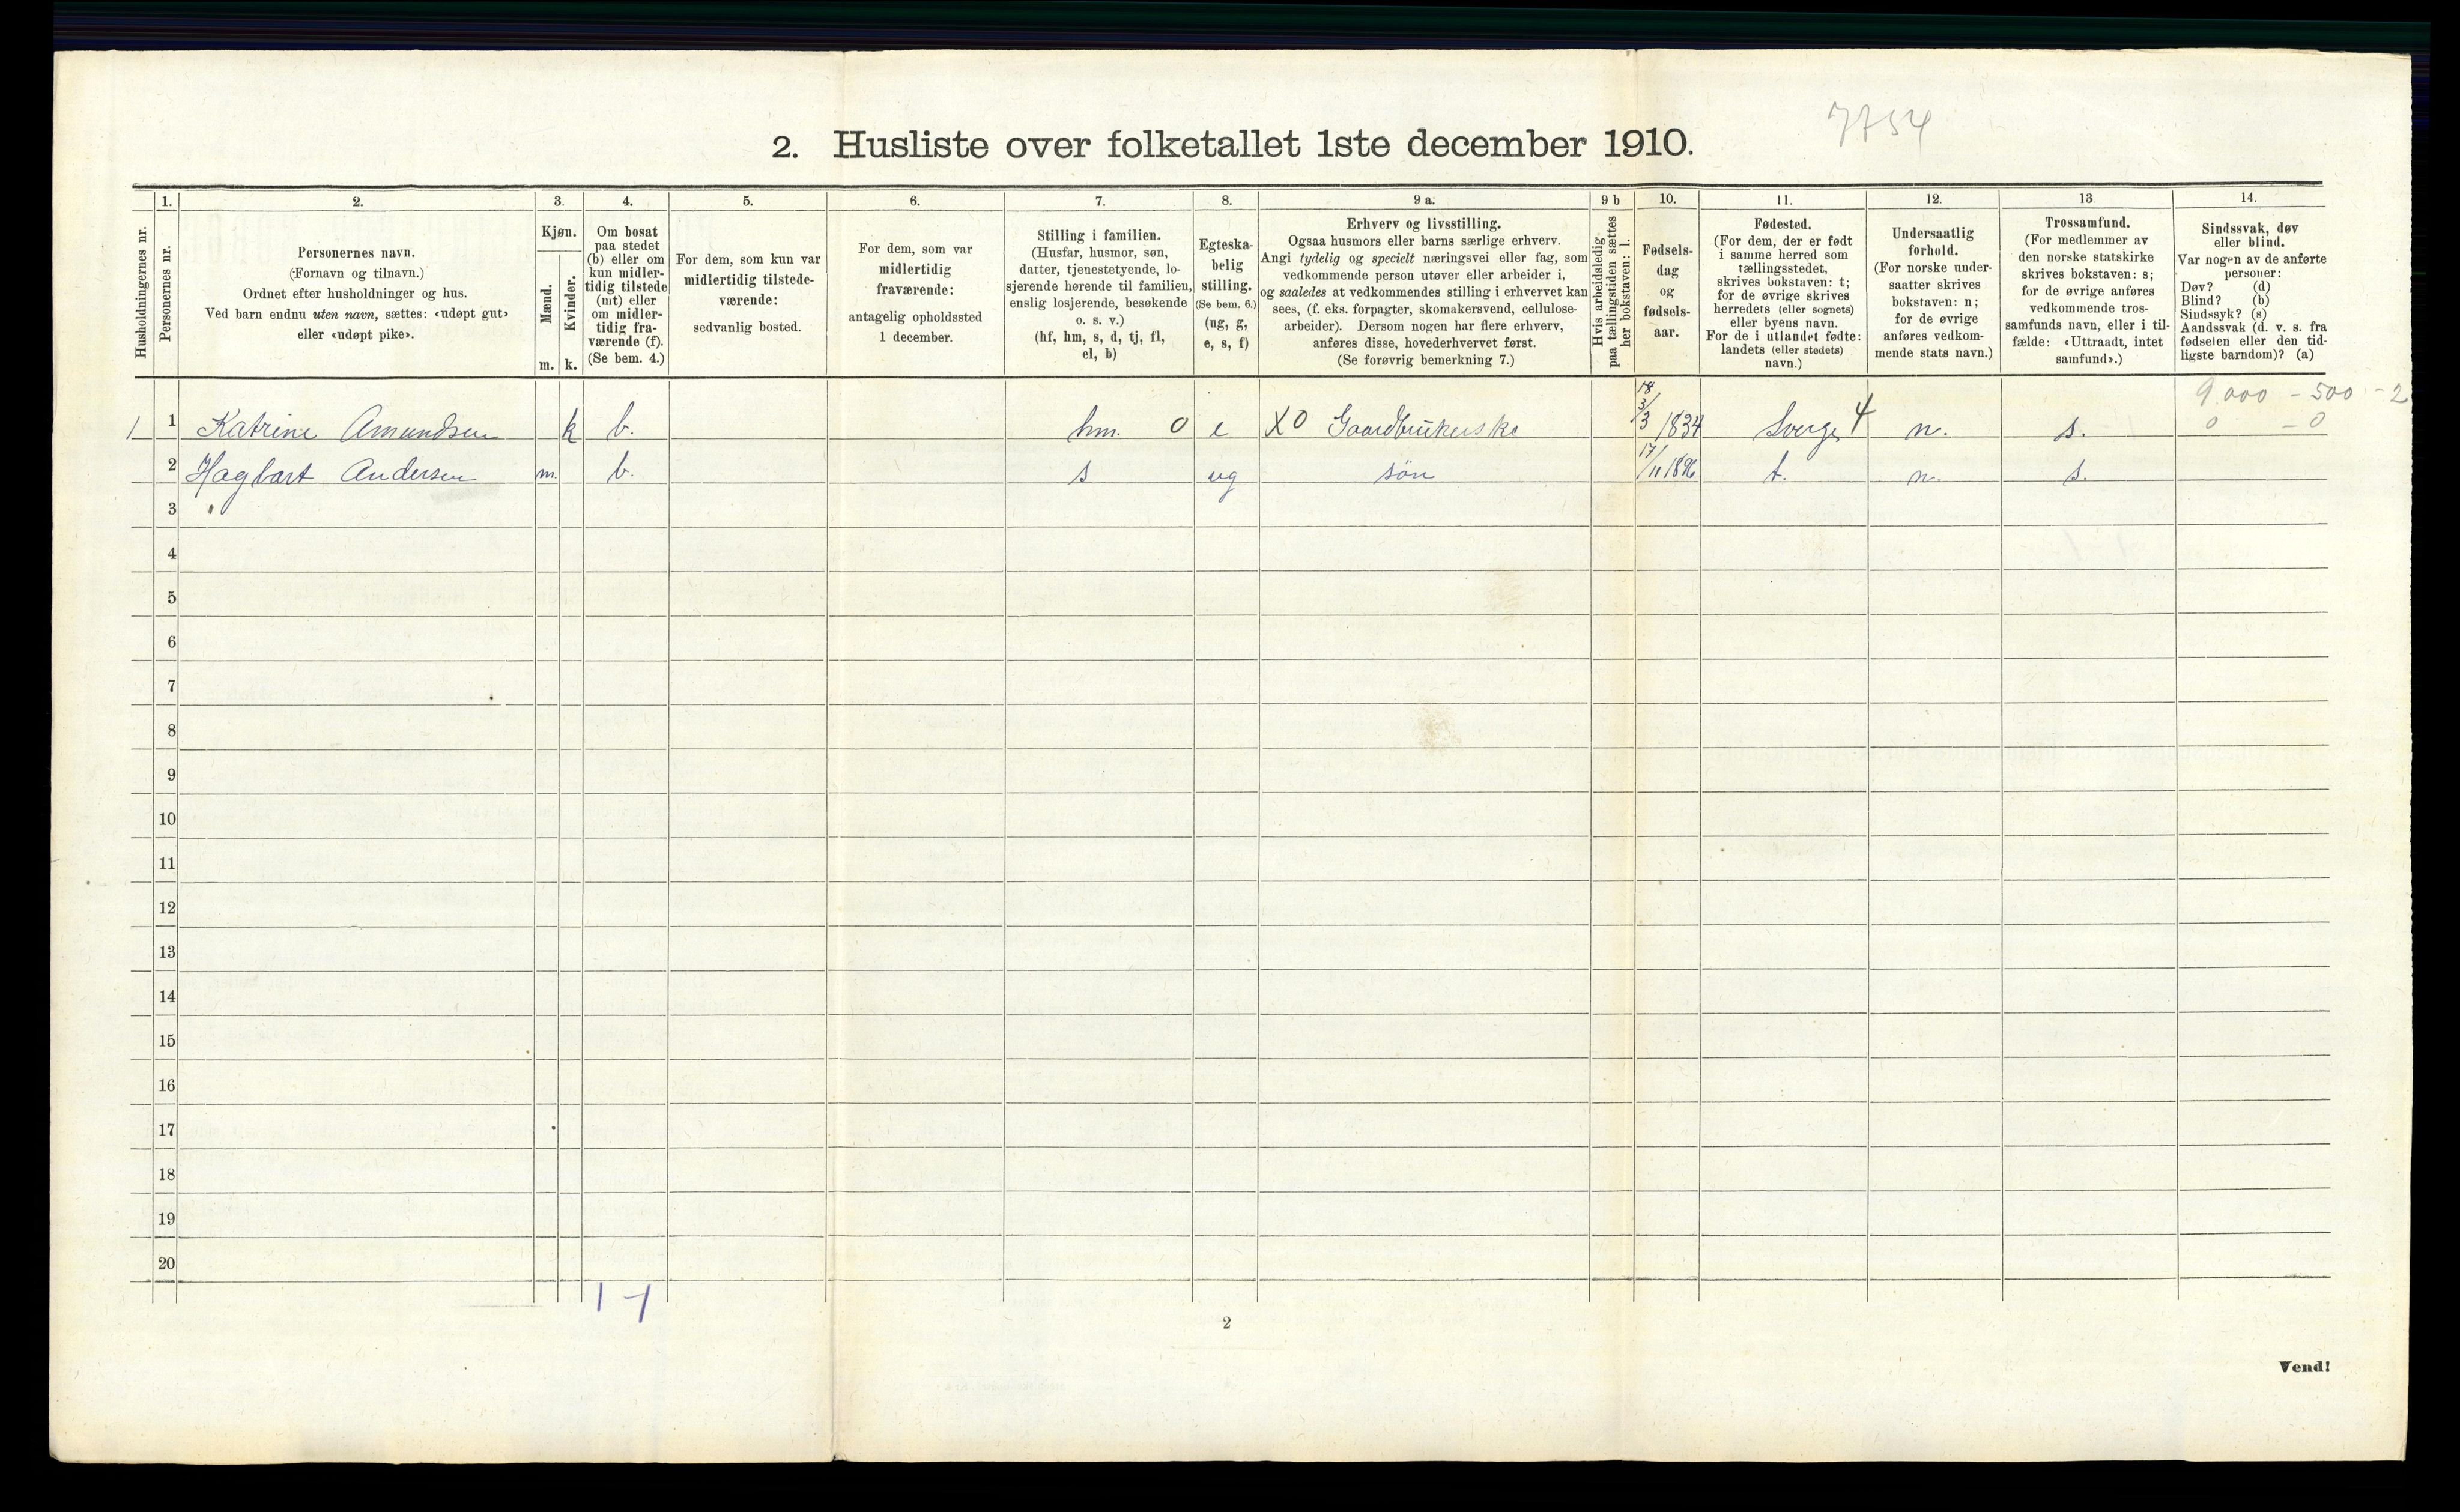 7754
2. Husliste over folketallet 1ste december 1910.
Husholdningernes nr.
1.
Personernes nr.
2.
Personernes navn.
(Fornavn og tilnavn.)
Ordnet efter husholdninger og hus.
Ved barn endnu uten navn, sættes: «udøpt gut»
eller «udøpt pike».
3.
Kjøn.
Mænd.
Kvinder.
m. k.
4.
Om bosat
paa stedet
(b) eller om
kun midler-
tidig tilstede
(mt) eller
om midler-
tidig fra-
værende (f).
(Se bem. 4.)
5.
For dem, som kun var
midlertidig tilstede-
værende:
sedvanlig bosted.
6.
For dem, som var
midlertidig
fraværende:
antagelig opholdssted
1 december.
7.
Stilling i familien.
(Husfar, husmor, søn,
datter, tjenestetyende, lo-
sjerende hørende til familien,
enslig losjerende, besøkende
o. s. v.)
(hf, hm, s, d, tj, fl,
el, b)
8.
Egteska-
belig
stilling.
(Se bem. 6.)
(ug, g,
e, s, f)
9 a.
Erhverv og livsstilling.
Ogsaa husmors eller barns særlige erhverv.
Angi tydelig og specielt næringsvei eller fag, som
vedkommende person utøver eller arbeider i,
og saaledes at vedkommendes stilling i erhvervet kan
sees, (f. eks. forpagter, skomakersvend, cellulose-
arbeider). Dersom nogen har flere erhverv,
anføres disse, hovederhvervet først.
(Se forøvrig bemerkning 7.)
9 b
Hvis arbeidsledig
paa tællingstiden sættes
her bokstaven: l.
10.
Fødsels-
dag
og
fødsels-
aar.
11.
Fødested.
(For dem, der er født
i samme herred som
tællingsstedet,
skrives bokstaven: t;
for de øvrige skrives
herredets (eller sognets)
eller byens navn.
For de i utlandet fødte:
landets (eller stedets)
navn.)
12.
Undersaatlig
forhold.
(For norske under-
saatter skrives
bokstaven: n;
for de øvrige
anføres vedkom-
mende stats navn.)
13.
Trossamfund.
(For medlemmer av
den norske statskirke
skrives bokstaven: s;
for de øvrige anføres
vedkommende tros-
samfunds navn, eller i til-
fælde: «Uttraadt, intet
samfund».)
14.
Sindssvak, døv
eller blind.
Var nogen av de anførte
personer:
Døv? (d)
Blind? (b)
Sindssyk? (s)
Aandssvak (d. v. s. fra
fødselen eller den tid-
ligste barndom)? (a)
9.000 - 500 - 2
0 - 0
1 1 Katrine Amundsen k b. hm. 0 e X0 Gaardbrukerske 3/3 1834 Sverge 4 n. s.
2 Hagbart Andersen m. b. s ug søn 17/11 1896 t. n. s.
3
4
5
6
7
8
9
10
11
12
13
14
15
16
17
18
19
20
1 - 1
2
Vend!